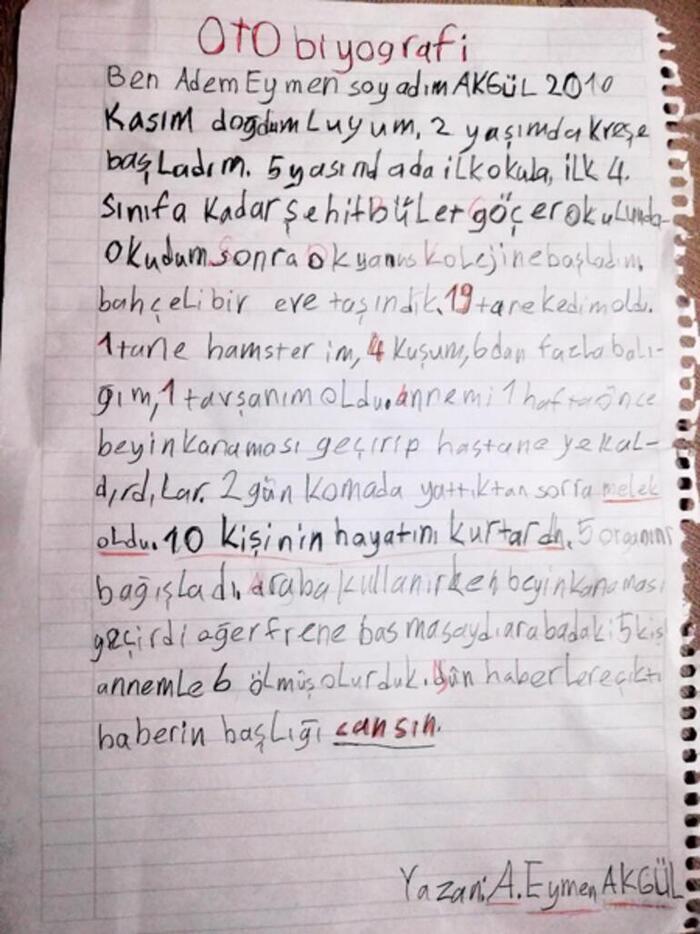 OTO biyografi
Ben Adem Eymen soyadım AKGÜL 2010
Kasım doğdumluyum, 2 yaşımda kreşe
başladım. 5 yasındada ilkokula, ilk 4.
Sınıfa kadar şehit Büler göçer okulunda
okudum sonra okyanus kolejine başladım,
bahçeli bir eve taşındık. 19 tane kedim oldu.
1 tane hamster im, 4 kuşum, 6 dan fazla balı-
ğım, 1 tavşanım oldu. annemi 1 hafta önce
beyin kanaması geçirip hastane ye kal-
dırdılar. 2 gün komada yattıktan sorra melek
oldu. 10 kişinin hayatını kurtardı. 5 organını
bağışladı. araba kullanırken beyin kanaması
geçirdi ağer frene basmasaydı arabadaki 5 kişi
annemle 6 ölmüş olurduk. Dün haberlere çıktı
baberin başlığı cansın.
Yazan: A. Eymen AKGÜL